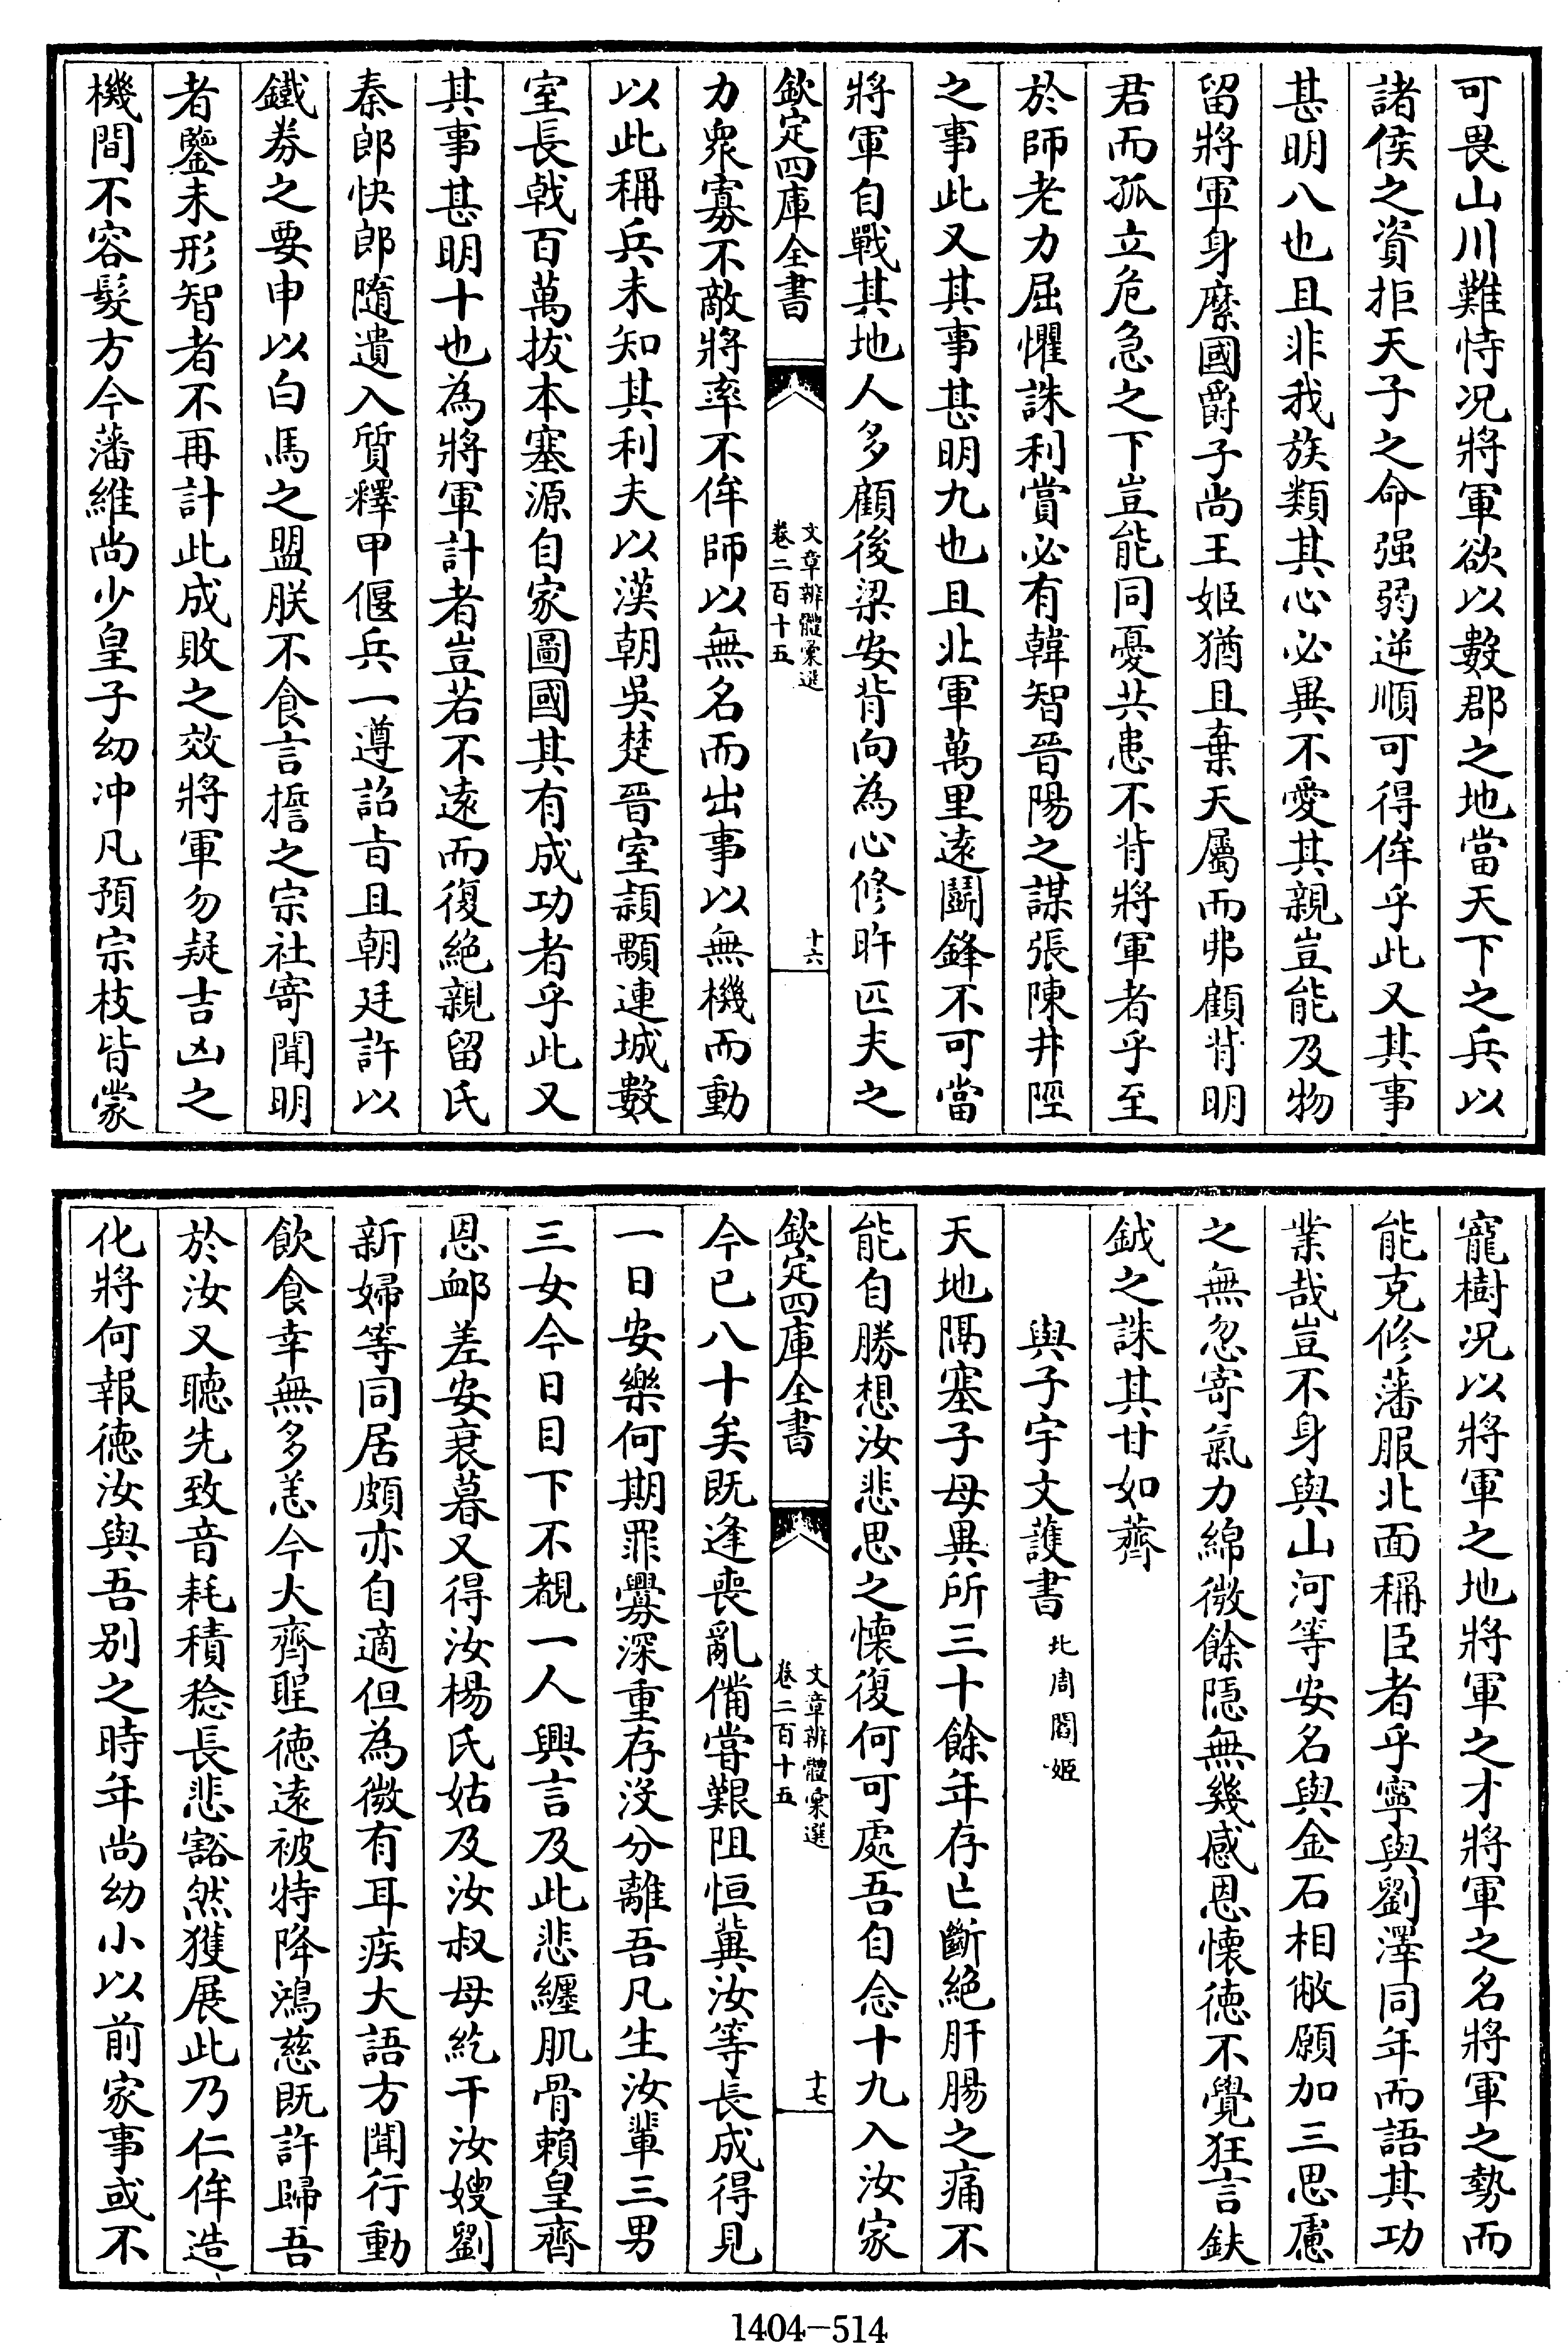 可畏山川難恃况將軍欲以數郡之地當天下之兵以
諸侯之資拒天子之命强弱逆順可得侔乎此又其事
甚明八也且非我族類其心必異不愛其親豈能及物
留將軍身縻國爵子尚王姬猶且棄天屬而弗顧背明
君而孤立危急之下豈能同憂共患不背將軍者乎至
於師老力屈懼誅利賞必有韓智晉陽之謀張陳井陘
之事此又其事甚明九也且北軍萬里逺鬭鋒不可當
將軍自戰其地人多顧後梁安背向為心修旿匹夫之
欽定四庫全書
文章辨體彙選
卷二百十五
十六
力衆寡不敵將率不侔師以無名而出事以無機而動
以此稱兵未知其利夫以漢朝吳楚晉室頴顒連城數
室長戟百萬拔本塞源自家圖國其有成功者乎此又
其事甚明十也為將軍計者豈若不逺而復絶親留氏
秦郎快郎隨遣入質釋甲偃兵一遵詔㫖且朝廷許以
鐵劵之要申以白馬之盟朕不食言擔之宗社寄聞明
者鑒未形智者不再計此成敗之效將軍勿疑吉凶之
機間不容髮方今藩維尚少皇子幼冲凡預宗枝皆蒙
寵樹况以將軍之地將軍之才將軍之名將軍之勢而
能克修藩服北面稱臣者乎寧與劉澤同年而語其功
業哉豈不身與山河等安名與金石相敝願加三思慮
之無忽寄氣力綿微餘隠無幾感恩懐徳不覺狂言鈇
鉞之誅其甘如薺
與子宇文䕶書北周閻姬
天地隔塞子母異所三十餘年存亡斷絶肝腸之痛不
能自勝想汝悲思之懐復何可處吾自念十九入汝家
欽定四庫全書
文章辨體彙選
卷二百十五
十七
今已八十矣既逢喪亂備嘗艱阻恒冀汝等長成得見
一日安樂何期罪釁深重存沒分離吾凡生汝輩三男
三女今日目下不覩一人興言及此悲纒肌骨賴皇齊
恩䘏差安衰暮又得汝楊氏姑及汝叔母紇干汝嫂劉
新婦等同居頗亦自適但為微有耳疾大語方聞行動
飲食幸無多恙今大齊聖徳逺被特降鴻慈既許歸吾
於汝又聴先致音耗積稔長悲豁然獲展此乃仁侔造
化將何報徳汝與吾别之時年尚幼小以前家事或不
1404-514